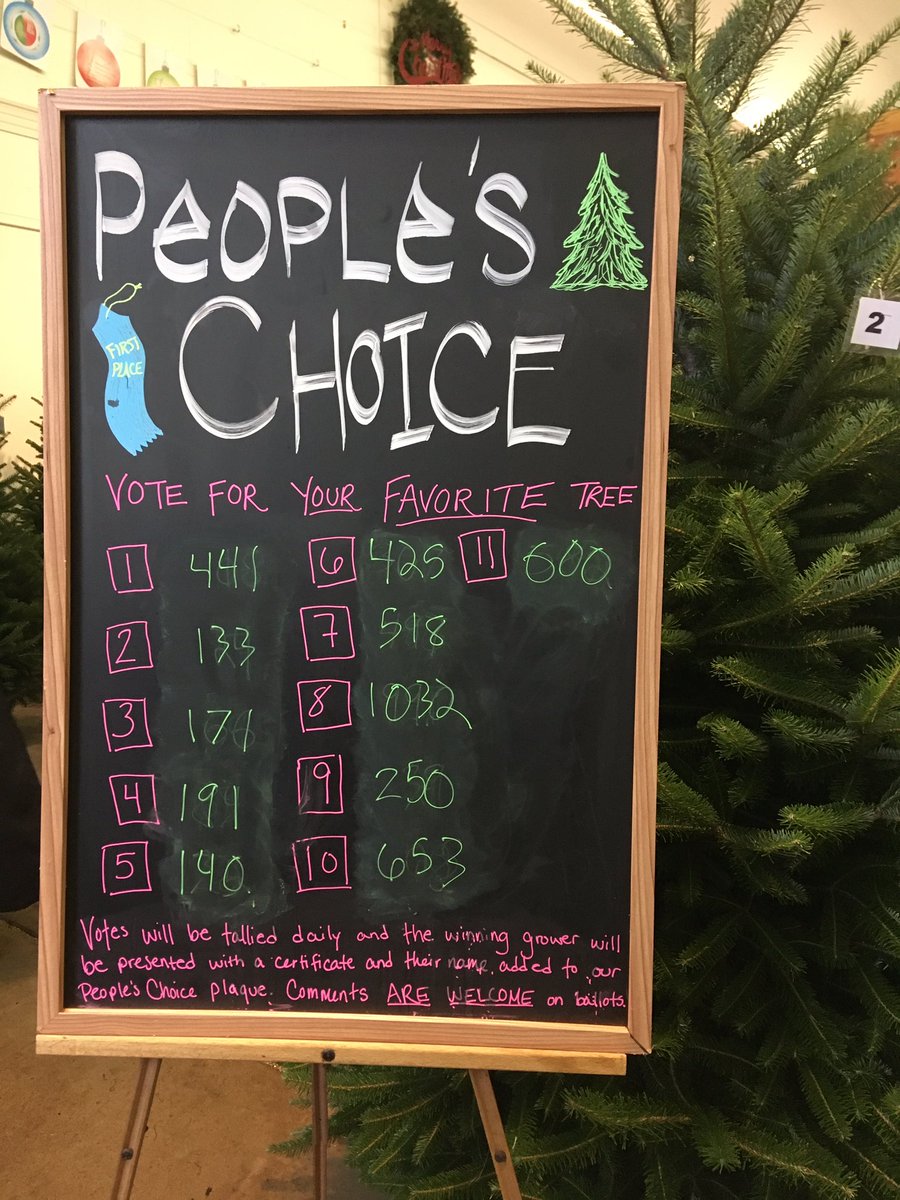 PEOPLE'S
CHOICE
FIRST
PLACE
VOTE FOR YOUR FAVORITE TREE
1 441 6 425 11 600
2 133 7 518
3 171 8 1032
4 191 9 250
5 140 10 653
Votes will be tallied daily and the winning grower will
be presented with a certificate and their name added to our
People's Choice plaque. Comments ARE WELCOME on ballots.
2